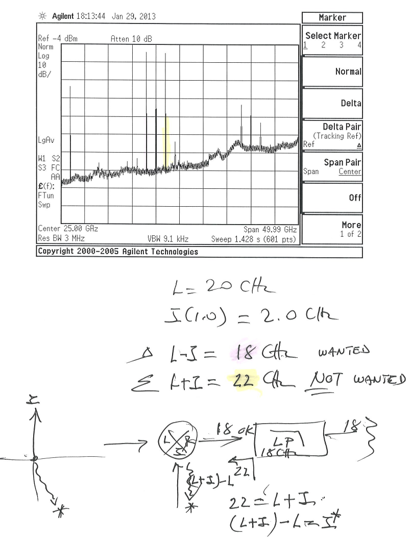 Agilent 18:13:44 Jan 29, 2013
Marker
Ref -4 dBm
Atten 10 dB
Norm
Log
10
dB/
LgAv
W1 S2
S3 FC
AA
£(f):
FTun
Swp
Center 25.00 GHz
Span 49.99 GHz
Res BW 3 MHz
VBW 9.1 kHz
Sweep 1.428 s (601 pts)
Copyright 2000-2005 Agilent Technologies
Select Marker
1 2 3 4
Normal
Delta
Delta Pair
(Tracking Ref)
Ref Δ
Span Pair
Span Center
Off
More
1 of 2
L = 20 GHz
I(1.0) = 2.0 GHz
Δ L-I = 18 GHz WANTED
Σ L+I = 22 GHz NOT WANTED
I
*
L R
I
18 OK
LP
18 GHz
18
22
(L+I)-L
*
22 = L+I
(L+I)-L = I*